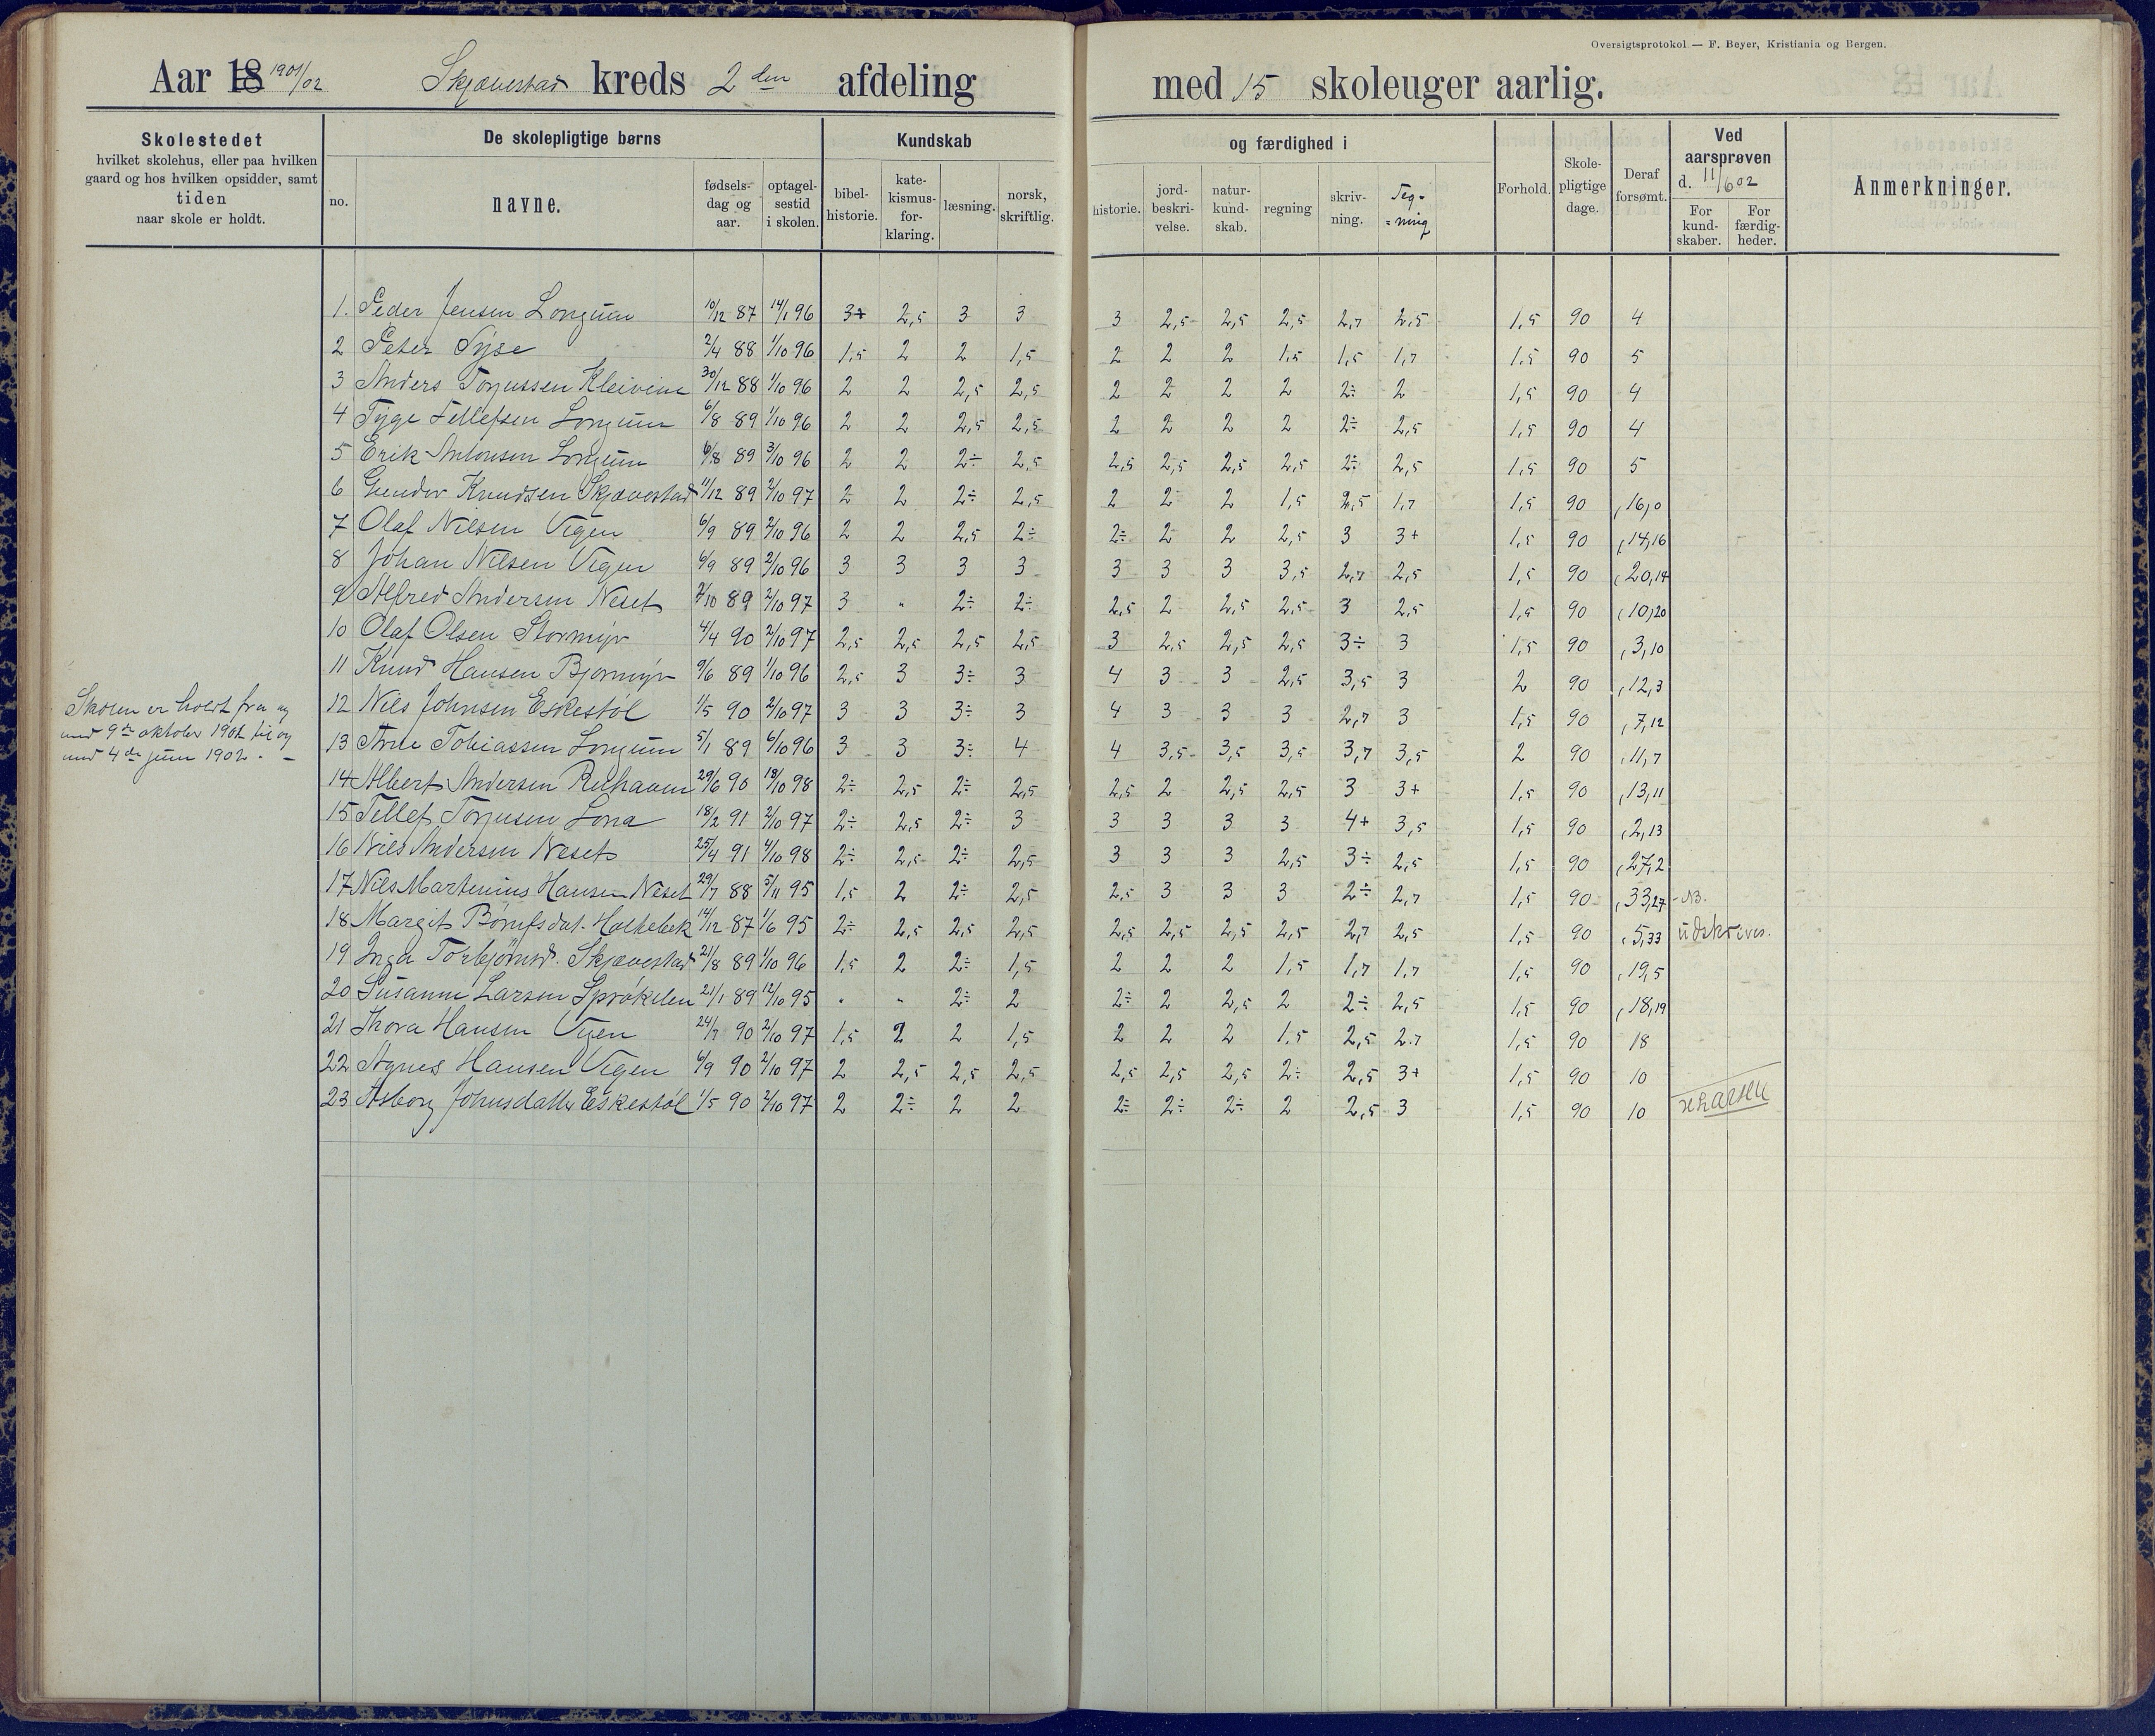 Oversigtsprotokol — F. Beyer, Kristiania og Bergen.
Aar 18 1901/02 Skjævestad kreds 2 den afdeling med 15 skoleuger aarlig.
Skolestedet
hvilket skolehus, eller paa hvilken
gaard og hos hvilken opsidder, samt
tiden
naar skole er holdt.
De skolepligtige børns
no. navne. fødsels-dag og aar. optagel-sestid i skolen.
Kundskab og færdighed i
bibel-historie. kate-kismus-for-klaring. læsning. norsk, skriftlig. historie. jord-beskri-velse. natur-kund-skab. regning skriv-ning. Teg-=ning
Forhold. Skole-pligtige dage. Deraf forsømt.
Ved aarsprøven d. 11/6 02
For kund-skaber. For færdig-heder.
Anmerkninger.
Skolen er holdt fra og
med 9de oktober 1901 til og
med 4de juni 1902. –
1. Peder Jensen Longum 10/12 87 14/1 96 3+ 2,5 3 3 3 2,5 2,5 2,5 2,7 2,5 1,5 90 4
2 Peter Syse 2/4 88 1/10 96 1,5 2 2 1,5 2 2 2 1,5 1,5 1,7 1,5 90 5
3 Anders Torjussen Kleivene 30/12 88 1/10 96 2 2 2,5 2,5 2 2 2 2 2÷ 2 1,5 90 4
4 Tyge Tellefsen Longum 6/8 89 1/10 96 2 2 2,5 2,5 2 2 2 2 2÷ 2,5 1,5 90 4
5 Erik Antonsen Longum 6/8 89 3/10 96 2 2 2÷ 2,5 2,5 2,5 2,5 2,5 2÷ 2,5 1,5 90 5
6 Gunder Knudsen Skjævestad 11/12 89 2/10 97 2 2 2÷ 2,5 2 2 2 1,5 2,5 1,7 1,5 90 16,0
7 Olaf Nilsen Vigen 6/9 89 2/10 96 2 2 2,5 2÷ 2÷ 2 2 2,5 3 3+ 1,5 90 14,16
8 Johan Nilsen Vigen 6/9 89 2/10 96 3 3 3 3 3 3 3 3,5 2,7 2,5 1,5 90 20,14
9 Alfred Andersen Neset 2/10 89 2/10 97 3 " 2÷ 2÷ 2,5 2 2,5 2,5 3 2,5 1,5 90 10,20
10 Olaf Olsen Stormyr 4/4 90 2/10 97 2,5 2,5 2,5 2,5 3 2,5 2,5 2,5 3÷ 3 1,5 90 3,10
11 Knud Hansen Bjormyr 9/6 89 1/10 96 2,5 3 3÷ 3 4 3 3 2,5 3,5 3 2 90 12,3
12 Nils Johnsen Eskestøl 1/5 90 2/10 97 3 3 3÷ 3 4 3 3 3 2,7 3 1,5 90 7,12
13 Arne Tobiassen Longum 5/1 89 6/10 96 3 3 3÷ 4 4 3,5 3,5 3,5 3,7 3,5 2 90 11,7
14 Albert Andersen 29/6 90 18/10 98 2÷ 2,5 2÷ 2,5 2,5 2 2,5 2,5 3 3+ 1,5 90 13,11
15 Tellef Torjusen Lona 18/2 91 2/10 97 2÷ 2,5 2÷ 3 3 3 3 3 4+ 3,5 1,5 90 2,13
16 Nils Andersen Neset 25/4 91 4/10 98 2÷ 2,5 2÷ 2,5 3 3 3 2,5 3÷ 2,5 1,5 90 27,2
17 Nils Martenius Hansen Neset 29/7 88 5/11 95 1,5 2 2÷ 2,5 2,5 3 3 3 2÷ 2,7 1,5 90 33,27 NB.
18 Margit 14/12 87 1/6 95 2÷ 2,5 2,5 2,5 2,5 2,5 2,5 2,5 2,7 2,5 1,5 90 5,33 udskrives.
19 Inga Torbjørnsd. Skjævestad 21/8 89 1/10 96 1,5 2 2÷ 1,5 2 2 2 1,5 1,7 1,7 1,5 90 19,5
20 Susanne Larsen Sprøkelen 21/1 89 12/10 95 " " 2÷ 2 2÷ 2 2,5 2 2÷ 2,5 1,5 90 18,19
21 Thora Hansen Vigen 24/7 90 2/10 97 1,5 2 2 1,5 2 2 2 1,5 2,5 2.7 1,5 90 18
22 Agnes Hansen Vigen 6/9 90 2/10 97 2 2,5 2,5 2,5 2,5 2,5 2,5 2÷ 2,5 3+ 1,5 90 10
23 Asborg Johnsdatter Eskestøl 1/5 90 2/10 97 2 2÷ 2 2 2÷ 2÷ 2÷ 2 2,5 3 1,5 90 10